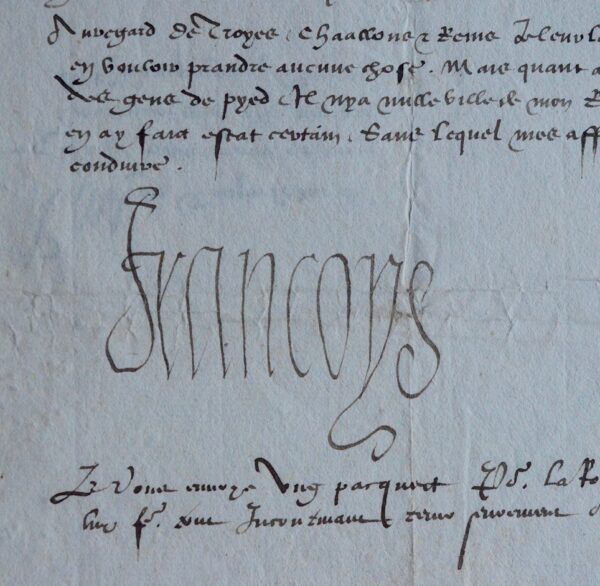 Au regard de Troyes, Chaallons & Reims Je leur
en vouloir prandre aucune chose. Mais quant a
des gens de pyed, Il ny a nulle ville de mon R
en ay faict estat certain, Sans lequel mes aff
conduire.
Francoys
Je vous envoye ung pacquect la Ro
luy incontinant seurement